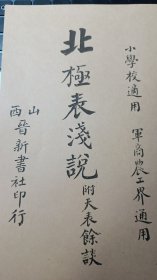 小學校適用　軍商農工界通用
北極表淺說
附天表餘談
山西晉新書社印行